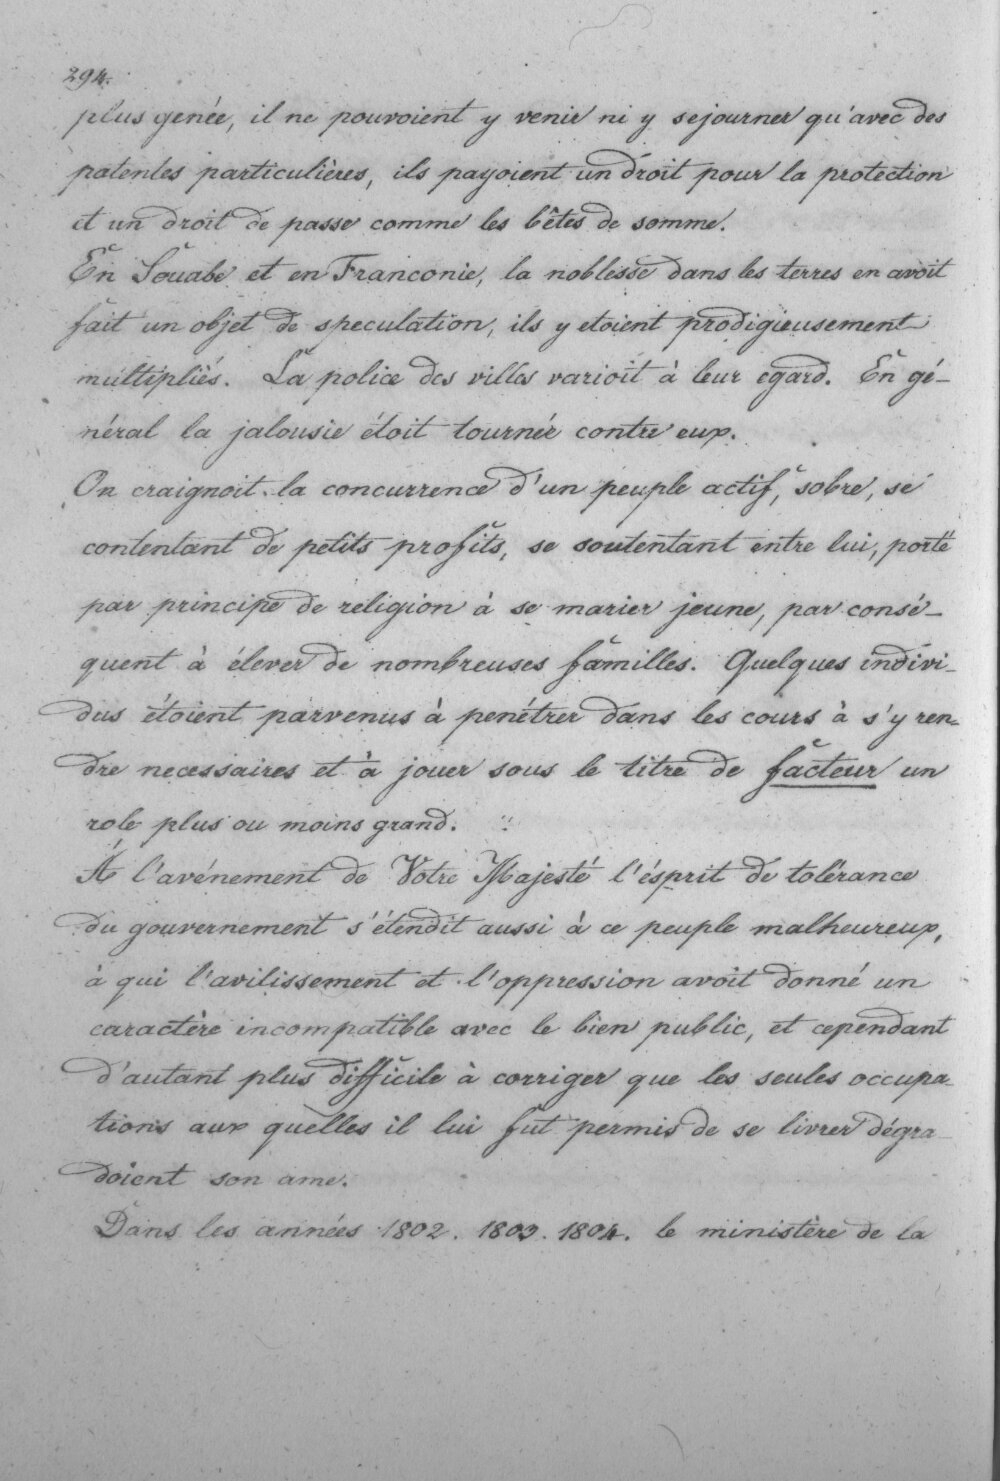 294.
plus genée, il ne pouvoient y venir ni y sejourner qu'avec des
patentes particulières, ils payoient un droit pour la protection
et un droit de passe comme les bêtes de somme.
En Souabe et en Franconie, la noblesse dans les terres en avoit
fait un objet de speculation, ils y etoient prodigieusement
multipliés. La police des villes varioit à leur egard. En gé-
néral la jalousie étoit tournée contre eux.
On craignoit la concurrence d'un peuple actif, sobre, se
contentant de petits profits, se soutentant entre lui, porté
par principe de religion à se marier jeune, par consé-
quent à élever de nombreuses familles. Quelques indivi-
dus étoient parvenus à penétrer dans les cours à s'y ren-
dre necessaires et à jouer sous le titre de facteur un
role plus ou moins grand.
A l'avénement de Votre Majesté l'ésprit de tolérance
du gouvernement s'étendit aussi à ce peuple malheureux,
à qui l'avilissement et l'oppression avoit donné un
caractère incompatible avec le bien public, et cependant
d'autant plus difficile à corriger que les seules occupa-
tions aux quelles il lui fut permis de se livrer dégra-
doient son ame.
Dans les années 1802. 1803. 1804. le ministère de la